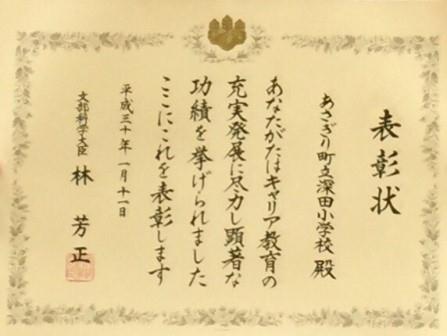 表彰状
あさぎり町立深田小学校 殿
あなたがたはキャリア教育の
充実発展に尽力し顕著な
功績を挙げられました
ここにこれを表彰します
平成三十年一月十一日
文部科学大臣 林 芳正